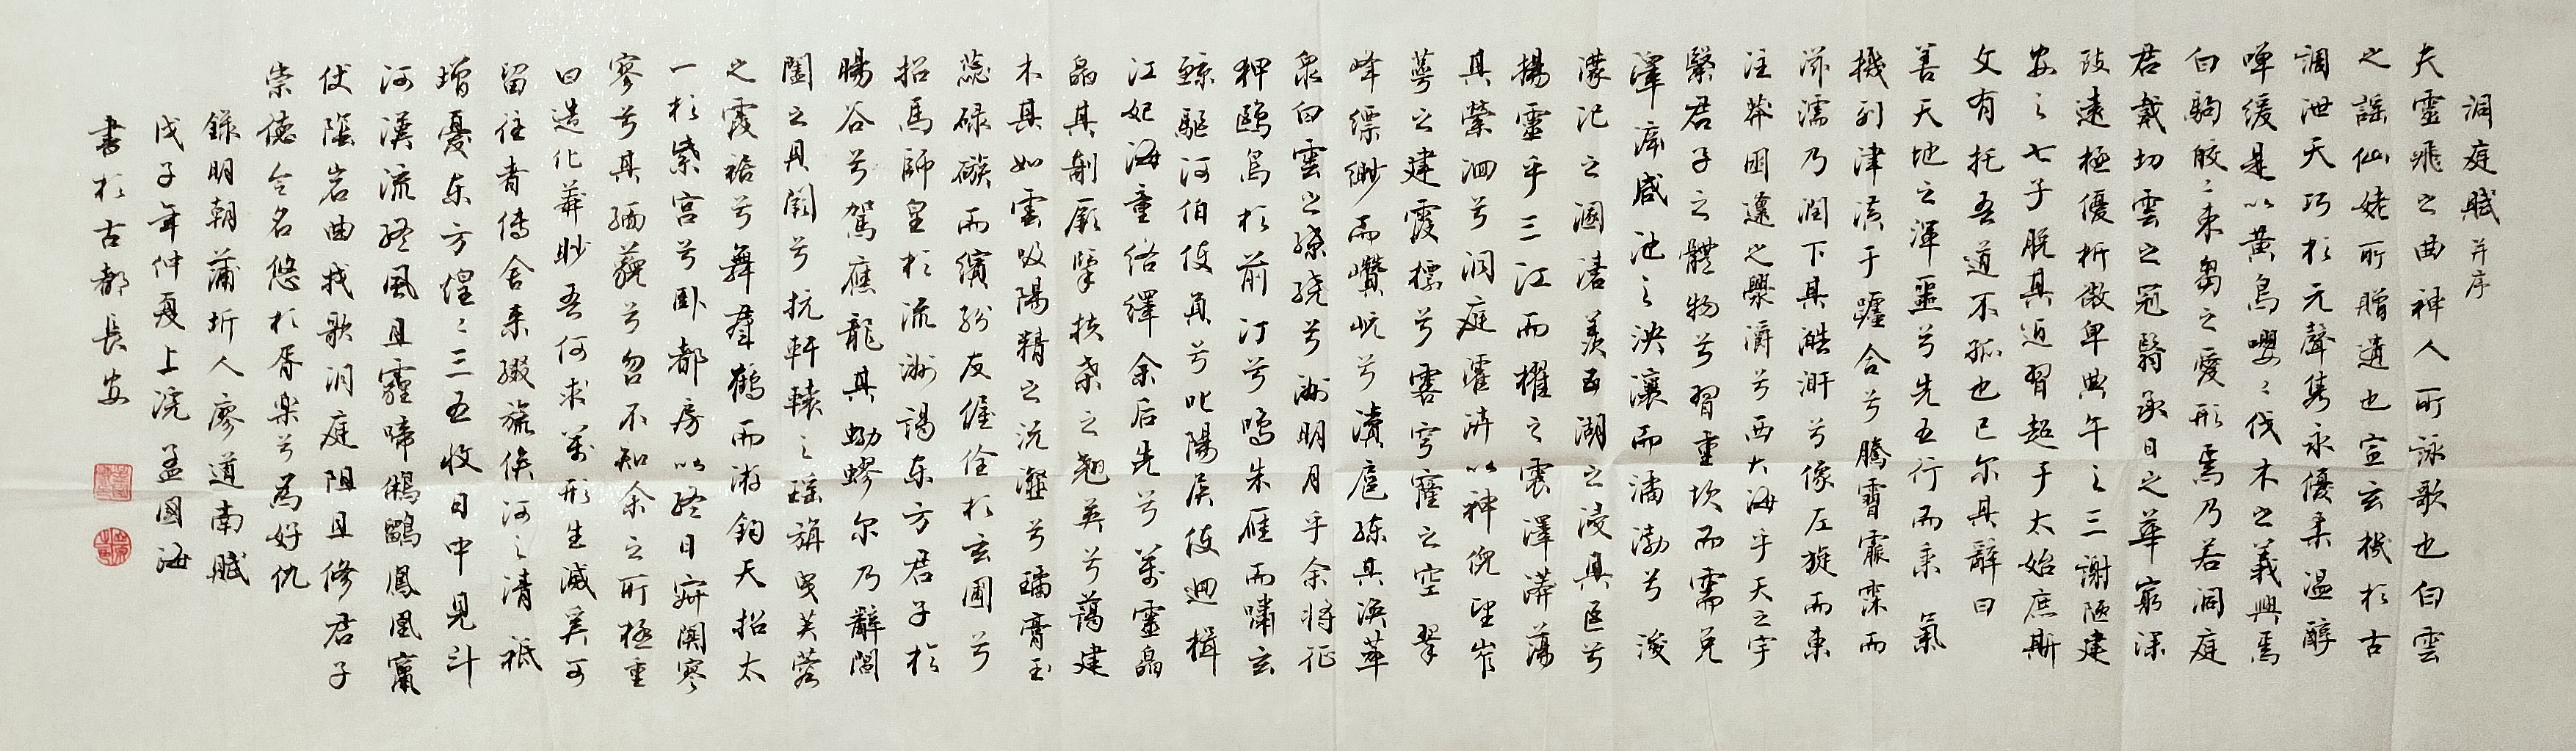 洞庭賦并序
夫靈飛之曲神人所詠歌也白雲
之謠仙姥所贈遺也宣玄機於古
調泄天巧於元聲雋永優柔溫醇
嘽緩是以黃鳥嚶々伐木之義興焉
白駒皎々束芻之愛形焉乃若洞庭
君戴切雲之冠翳承日之華窮深
跂遠極優析微卑典午之三謝陋建
安之七子脫其近習超乎太始庶斯
文有托吾道不孤也已尔其辭曰
善天地之渾噩兮先五行而秉氣
機列津潢于躔舍兮騰霄霏霂而
添濡乃潤下其皓澣兮像左旋而東
注莽國邍之釁灂兮西大海乎天之宇
緊君子之體物兮習重坎而需兌
澤庥咸池之泱瀼而潏渤兮浚
濛汜之涸渚羨五湖之浸其區兮
揚靈乎三江而櫂之震澤漭蕩
具縈洄兮洞庭灌济以神倪望岝
萼之建霞標兮睯穹窿之空翠
峰縹緲而巑岏兮瀆扈練其渙萃
泉白雲之繚繞兮洲明月乎余將征
狎鷗鳥於前汀兮鳴朱雁而嘯玄
鯨驅河伯使負兮叱陽侯使迴楫
江妃海童絡繹余后先兮萬靈皛
皛其制厥犖扶桑之翹英兮蔼建
木其如雲吸陽精之沆瀣兮璚膏玉
蕊碌磙而繽紛友偓佺於玄圃兮
招馬師皇於流洲謁东方君子於
暘谷兮駕應龍其蚴蟉尔乃辭閶
闔之具闕兮抗軒轅之瑤旃曳芙蓉
之霞裕兮舞羣鶴而游鈞天招太
一於紫宮兮卧都房以終日寂闃寥
寥兮其緬藐兮忽不知余之所極重
曰造化莽眇吾何求萬形生滅奚可
留住者傳舍来綴旒俟河之清祗
增憂东方煌々三五收日中見斗
河漢流終風且霾啼鵂鶹鳳凰竄
伏隱岩曲找歌洞庭阻且修君子
崇德令名悠於胥樂兮為好仇
錄明朝蒲圻人廖道南賦
戊子年仲夏上浣孟國海
書於古都長安